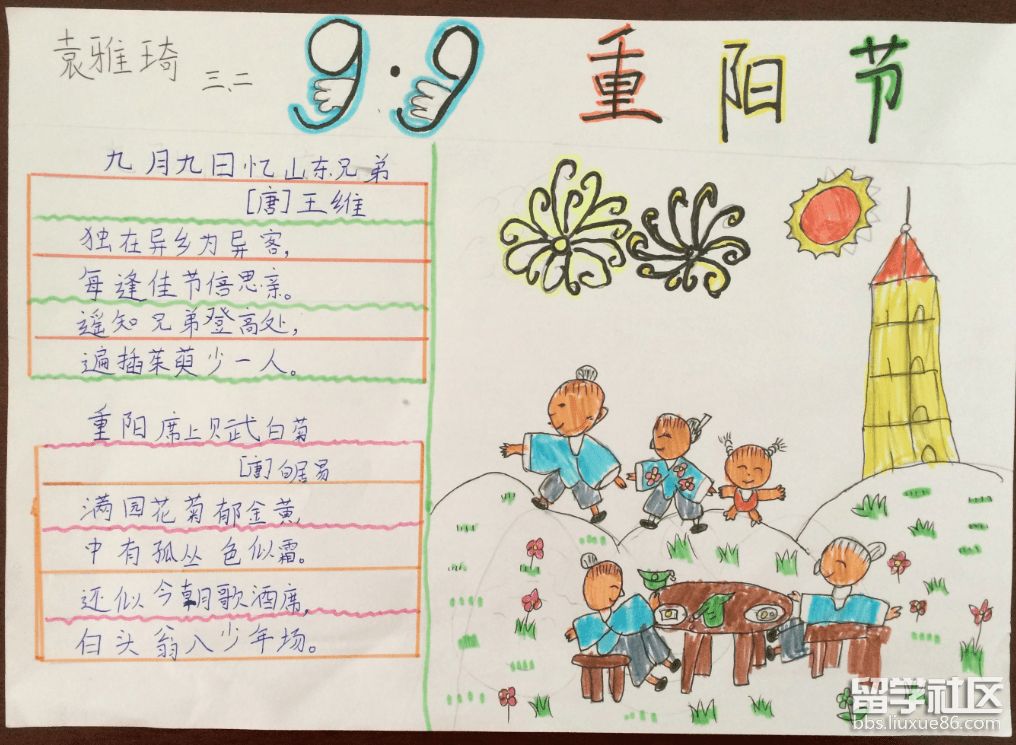 袁雅琦
三、二
9.9 重阳节
九月九日忆山东兄弟
[唐]王维
独在异乡为异客,
每逢佳节倍思亲。
遥知兄弟登高处,
遍插茱萸少一人。
重阳席上贝武白菊
[唐]白居易
满园花菊郁金黄
中有孤丛色似霜。
还似今朝歌酒席,
白头翁入少年场。
留学社区
bbs.liuxue86.com